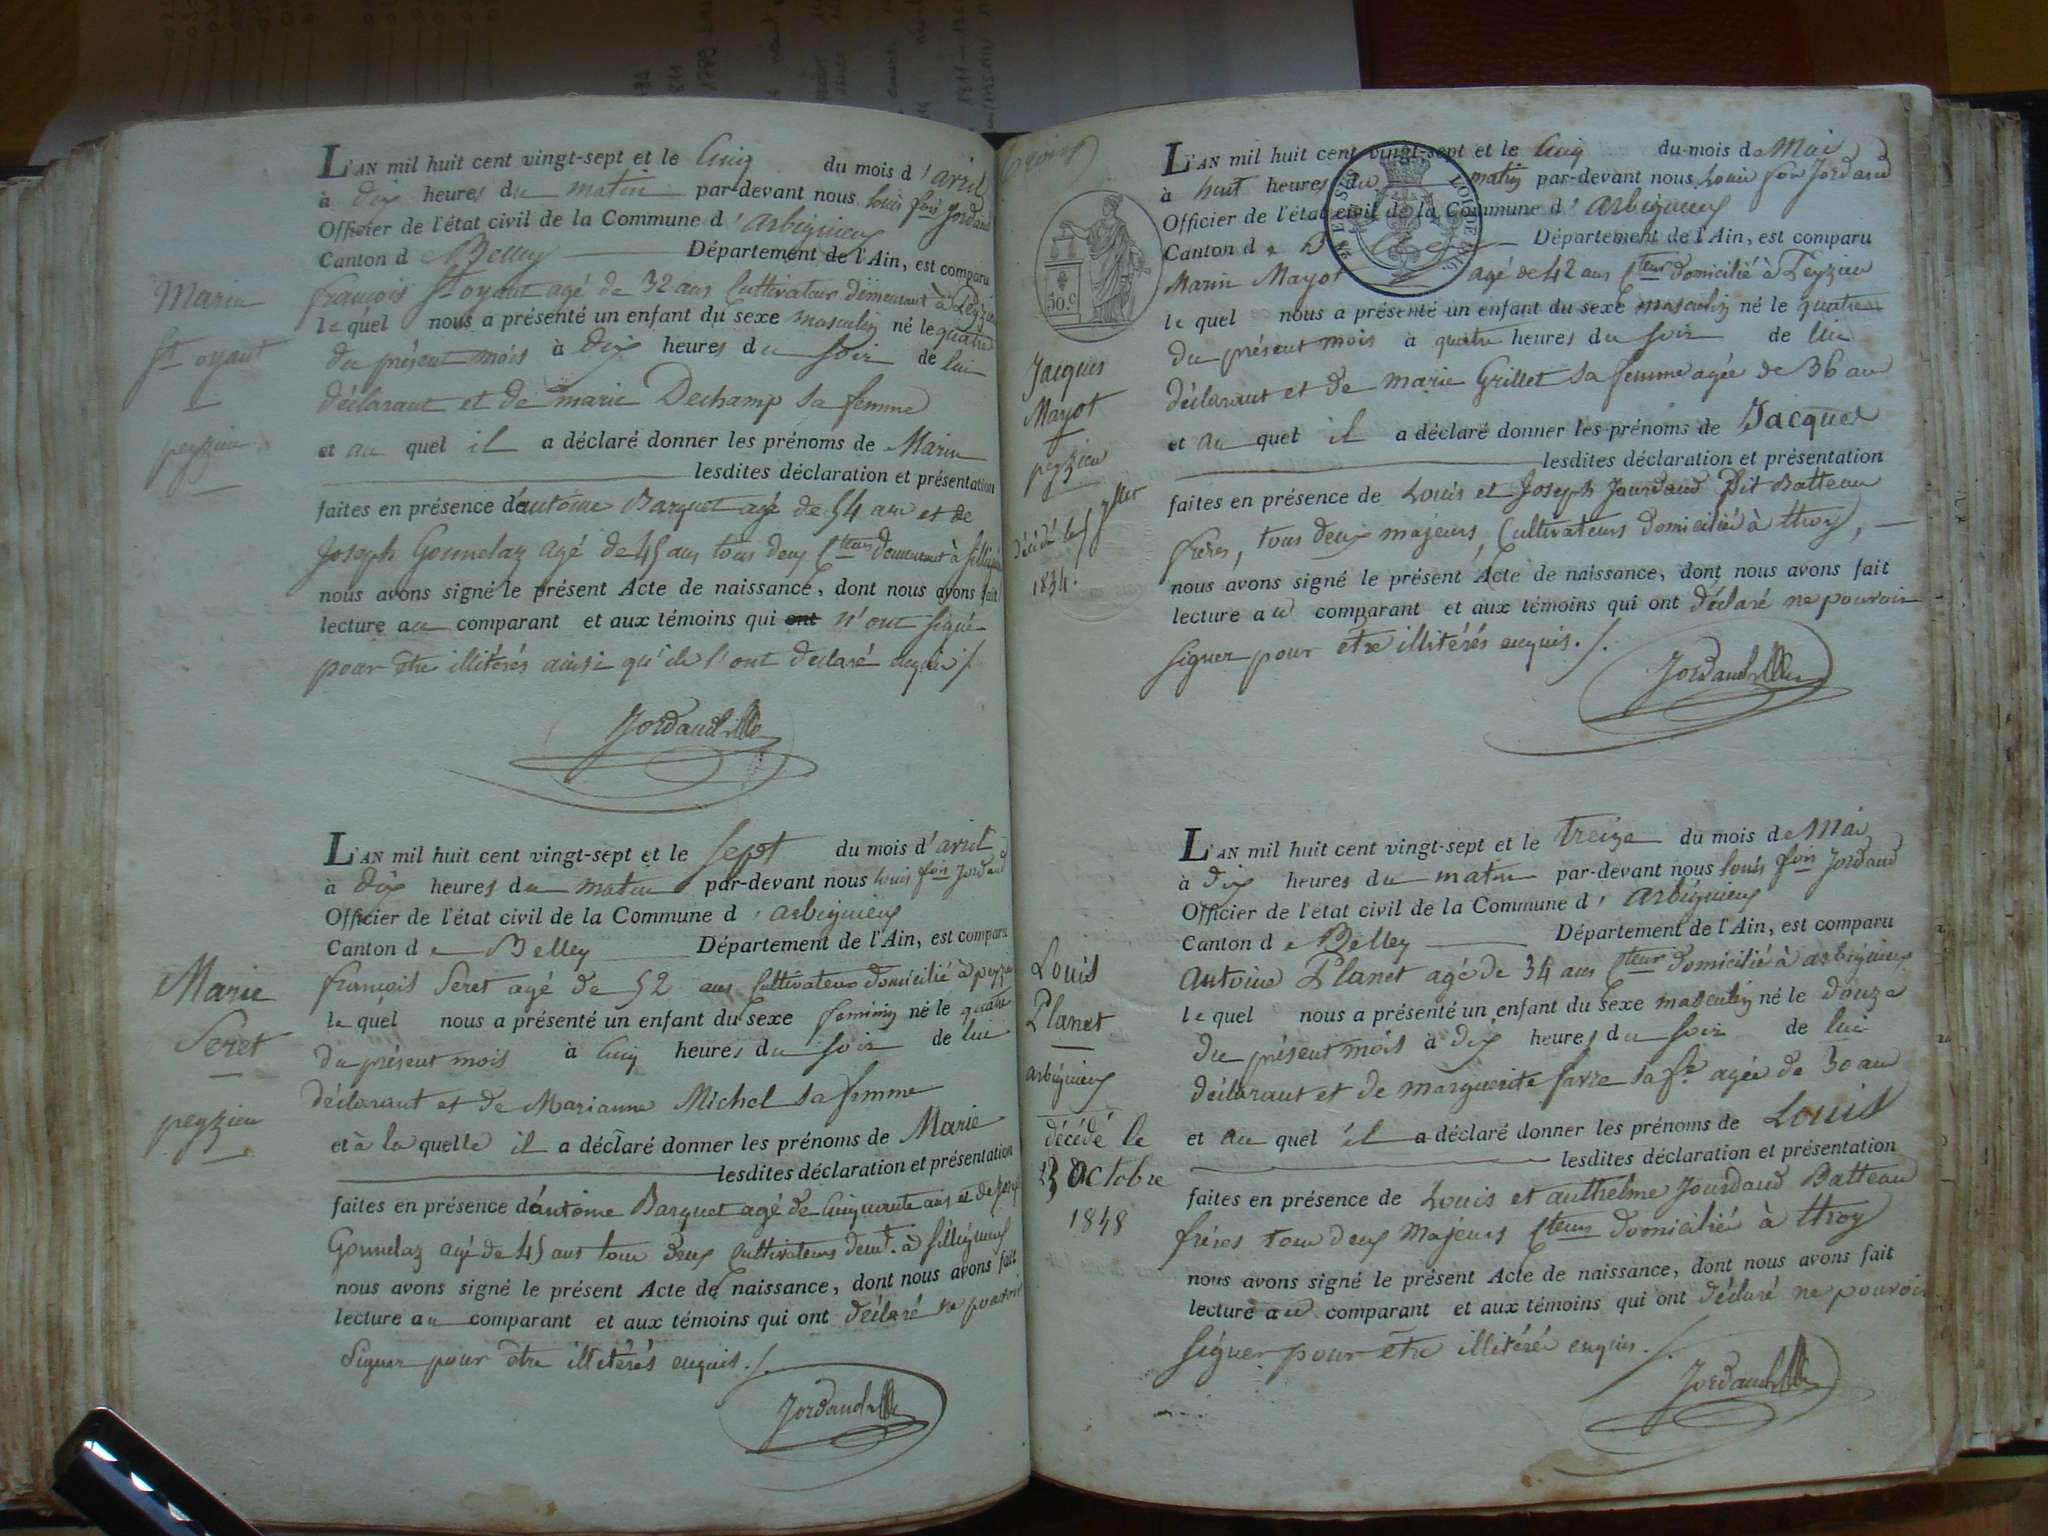 L'AN mil huit cent vingt-sept et le Cinq du mois d'avril
à dix heures du matin par-devant nous louis fois Jordand
Officier de l'état civil de la Commune d'arbignieu
Canton d Belley Département de l'Ain, est comparu
françois St oyant agé de 32 ans Cultivateur demeurant à Peyzieu
lequel nous a présenté un enfant du sexe masculin né le quatre
du présent mois à dix heures du soir de lui
déclarant et de marie Dechamp sa femme
et au quel il a déclaré donner les prénoms de Marin
lesdites déclaration et présentation
faites en présence d'antoine Barquet agé de 54 ans et de
Joseph Gonnelaz agé de 45 ans tous deux Cteurs demeurant à
nous avons signé le présent Acte de naissance, dont nous avons fait
lecture au comparant et aux témoins qui ont n'ont signé
pour être illitérés ainsi qu'ils l'ont déclaré enquis ./.
Marin
St oyant
peyzieu
L'AN mil huit cent vingt-sept et le sept du mois d'avril
à dix heures du matin par-devant nous louis fois Jordand
Officier de l'état civil de la Commune d'arbignieu
Canton de Belley Département de l'Ain, est comparu
françois Seret agé de 52 ans Cultivateur domicilié à peyzieu
lequel nous a présenté un enfant du sexe féminin né le quatre
du présent mois à Cinq heures du soir de lui
déclarant et de Marianne Michel sa femme
et à la quelle il a déclaré donner les prénoms de Marie
lesdites déclaration et présentation
faites en présence d'antoine Barquet agé de Cinquante ans et de
Gonnelaz agé de 45 ans tous deux Cultivateurs demt. à Sillignieu
nous avons signé le présent Acte de naissance, dont nous avons fait
lecture au comparant et aux témoins qui ont déclaré ne pouvoir
signer pour être illitérés enquis ./.
Marie
Seret
peyzieu
L'AN mil huit cent vingt-sept et le Cinq du mois de Mai
à huit heures du matin par-devant nous Louis fois Jordand
Officier de l'état civil de la Commune d'arbignieu
Canton de Département de l'Ain, est comparu
Marin Mayot agé de 42 ans Cteur domicilié à Peyzieu
lequel nous a présenté un enfant du sexe masculin né le quatre
du présent mois à quatre heures du soir de lui
déclarant et de marie Grillet sa femme agée de 36 ans
et au quel il a déclaré donner les prénoms de Jacques
lesdites déclaration et présentation
faites en présence de Louis et Joseph Jourdand Dit Batteau
frères, tous deux majeurs, Cultivateurs domiciliés à thoy,
nous avons signé le présent Acte de naissance, dont nous avons fait
lecture au comparant et aux témoins qui ont déclaré ne pouvoir
signer pour être illitérés enquis ./.
50.c
Jacques
Mayot
peyzieu
décédé le
1834.
L'AN mil huit cent vingt-sept et le treize du mois de Mai
à dix heures du matin par-devant nous louis fois Jordand
Officier de l'état civil de la Commune d'arbignieu
Canton de Belley Département de l'Ain, est comparu
Antoine Planet agé de 34 ans Cteur domicilié à arbignieu
lequel nous a présenté un enfant du sexe masculin né le douze
du présent mois à dix heures du soir de lui
déclarant et de marguerite favre sa fe agée de 30 ans
et au quel il a déclaré donner les prénoms de Louis
lesdites déclaration et présentation
faites en présence de Louis et anthelme Jourdand Batteau
frères tous deux Majeurs Cteurs domiciliés à thoy
nous avons signé le présent Acte de naissance, dont nous avons fait
lecture au comparant et aux témoins qui ont déclaré ne pouvoir
signer pour être illitérés enquis ./.
Louis
Planet
arbignieu
décédé le
23 Octobre
1848